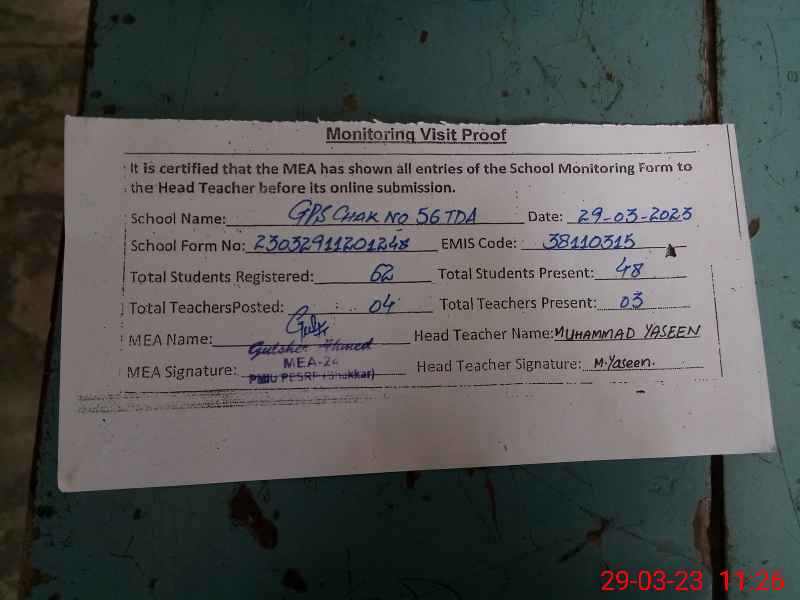 Monitoring Visit Proof
It is certified that the MEA has shown all entries of the School Monitoring Form to
the Head Teacher before its online submission.
School Name: GPS CHAK NO 56 TDA Date: 29-03-2023
School Form No: 23032911201248 EMIS Code: 38110315
Total Students Registered: 62 Total Students Present: 48
Total TeachersPosted: 04 Total Teachers Present: 03
MEA Name: Gulsher Ahmed Head Teacher Name: MUHAMMAD YASEEN
MEA Signature: MEA-24 Head Teacher Signature: M.Yaseen.
PMIU PESRP (Bhakkar)
29-03-23 11:26